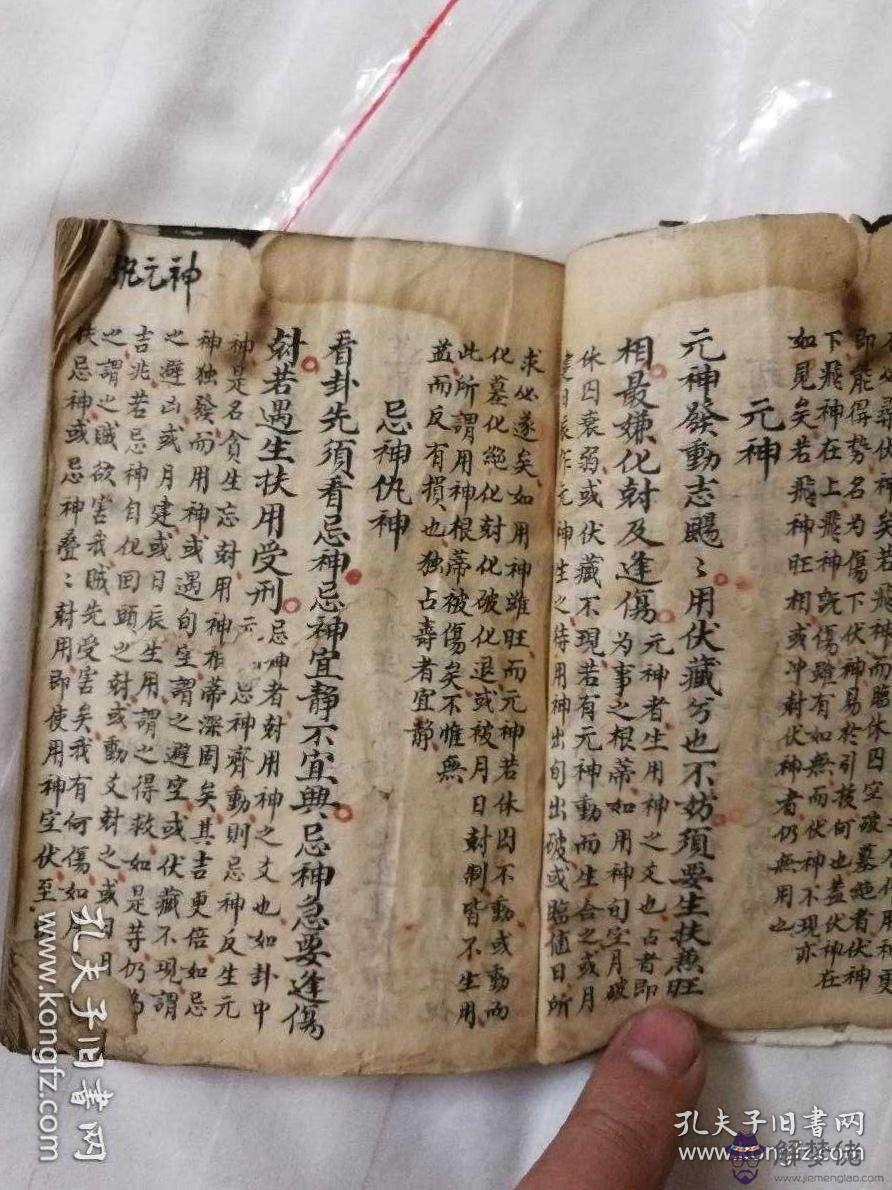 即能得勢名為傷下伏神易於引拔何也蓋伏神在
下飛神在上飛神既傷雖有如無而伏神不現亦
如見矣若飛神旺相或冲尅伏神者仍無用也
元神
元神發動志颺〻用伏藏兮也不妨須要生扶兼旺
相最嫌化尅及逢傷元神者生用神之爻也占者即
為事之根蒂如用神旬空月破
休囚衰弱或伏藏不現若有元神動而生合之或月
元神生之待用神出旬出破或臨值日所
求必遂矣如用神雖旺而元神若休囚不動或動而
化墓化絕化尅化破化退或被月日尅制皆不生用
此所謂用神根蒂被傷矣不惟無
益而反有損也独占壽者宜静
忌神仇神
看卦先須看忌神忌神宜静不宜興忌神急要逢傷
尅若遇生扶用受刑忌神者尅用神之爻也如卦中
忌神齊動則忌神反生元
神是名貪生忘尅用神根蒂深固矣其吉更倍如忌
神独發而用神或遇旬空謂之避空或伏藏不現謂
之避凶或月建或日辰生用謂之得救如是等仍為
吉兆若忌神自化回頭之尅或動爻尅之或日月
之謂之賊欲害我賊先受害矣我有何傷如用
扶忌神或忌神疊〻尅用即使用神空伏至
元神
孔夫子旧书网
www.kongfz.com
孔夫子旧书网
www.kongfz.com
解梦佬
www.jiemenglao.com